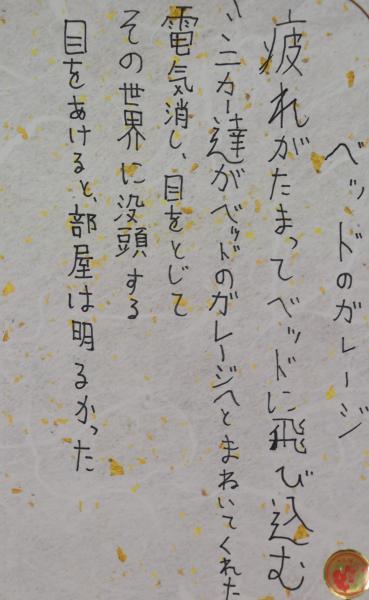 ベッドのガレージ
疲れがたまってベッドに飛び込む
ミニカー達がベッドのガレージへとまねいてくれた
電気消し、目をとじて
その世界に没頭する
目をあけると、部屋は明るかった